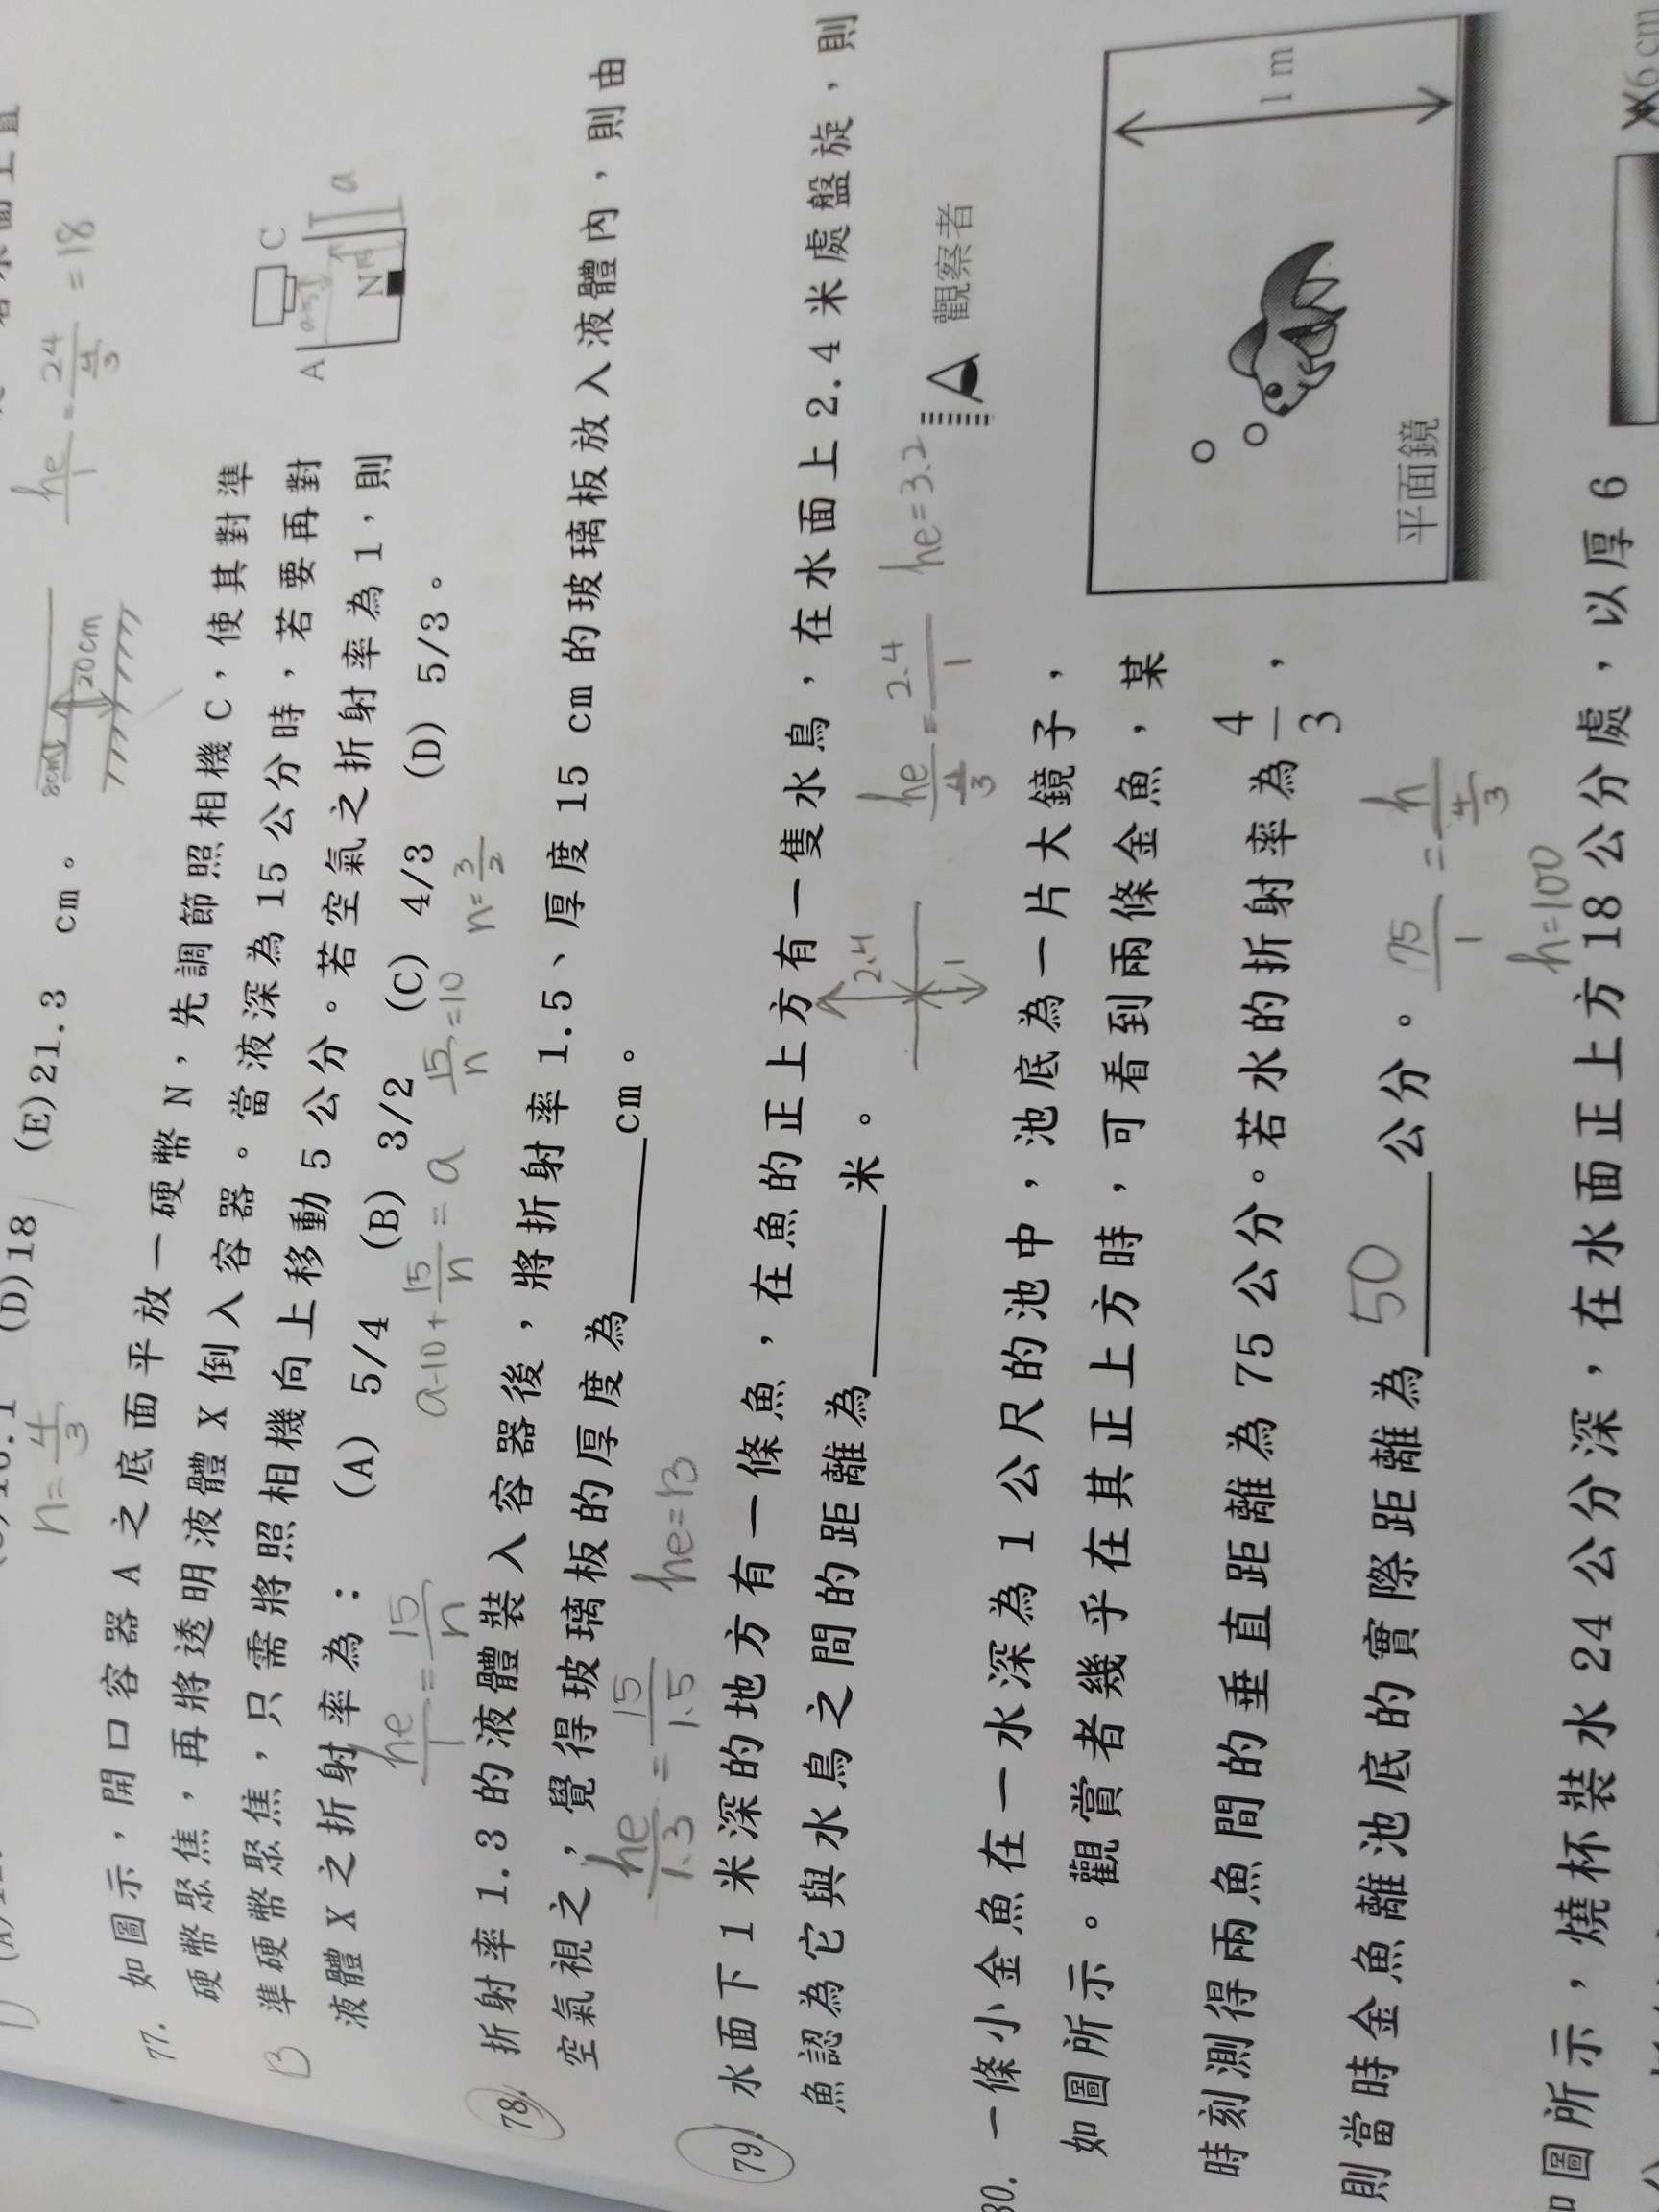 (D)18 (E)21.3 cm。
n=4/3
he/1=24/(4/3)=18
20cm
77. 如圖示，開口容器 A 之底面平放一硬幣 N，先調節照相機 C，使其對準
硬幣聚焦，再將透明液體 X 倒入容器。當液深為 15 公分時，若要再對
B 準硬幣聚焦，只需將照相機向上移動 5 公分。若空氣之折射率為 1，則
液體 X 之折射率為： (A) 5/4 (B) 3/2 (C) 4/3 (D) 5/3。
A
C
N
a
he/1=15/n
a-10+15/n=a
15/n=10
n=3/2
78. 折射率 1.3 的液體裝入容器後，將折射率 1.5、厚度 15 cm 的玻璃板放入液體內，則由
空氣視之，覺得玻璃板的厚度為 cm。
he/1.3=15/1.5 he=13
79. 水面下 1 米深的地方有一條魚，在魚的正上方有一隻水鳥，在水面上 2.4 米處盤旋，則
魚認為它與水鳥之間的距離為 米。
2.4
1
he/(4/3)=2.4/1 he=3.2
80. 一條小金魚在一水深為 1 公尺的池中，池底為一片大鏡子，
如圖所示。觀賞者幾乎在其正上方時，可看到兩條金魚，某
時刻測得兩魚間的垂直距離為 75 公分。若水的折射率為 4/3，
則當時金魚離池底的實際距離為 50 公分。
75/1=h/(4/3)
h=100
觀察者
1 m
平面鏡
如圖所示，燒杯裝水 24 公分深，在水面正上方 18 公分處，以厚 6
6cm